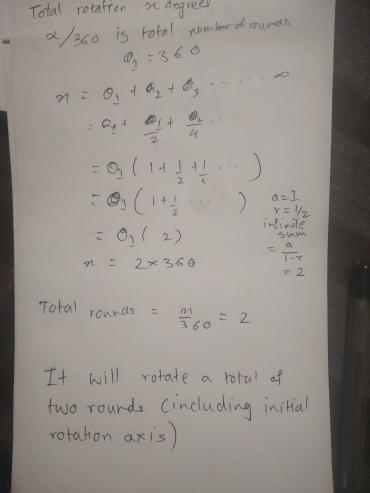 Total rotation x degrees
x/360 is total number of rounds
θ₁ = 360
x = θ₁ + θ₂ + θ₃ ...... ∞
= θ₁ + θ₁/2 + θ₂/4 ......
= θ₁ ( 1 + 1/2 + 1/4 .... )
= θ₁ ( 1 + 1/2 ..... )
= θ₁ ( 2 )
x = 2 × 360
a = 1
r = 1/2
infinite
sum
= a/1-r
= 2
Total rounds = x/360 = 2
It will rotate a total of
two rounds (including initial
rotation axis)